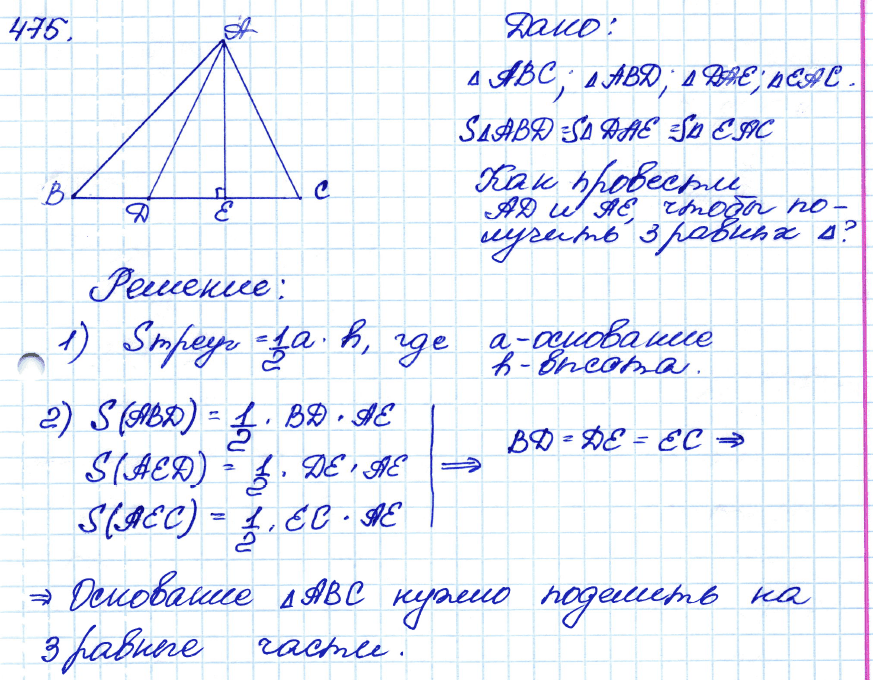 475.
A
B
D
E
C
Дано:
△ ABC; △ ABD; △ DAE; △EAC.
S△ABD = S△ DAE = S△ EAC
Как провести
AD и AE, чтобы по-
лучить 3 равных △?
Решение:
1) Sтреуг = 1/2 a · h, где a - основание
h - высота.
2) S(ABD) = 1/2 · BD · AE
S(AED) = 1/2 · DE · AE
S(AEC) = 1/2 · EC · AE
⇒ BD = DE = EC ⇒
⇒ Основание △ABC нужно поделить на
3 равные части.